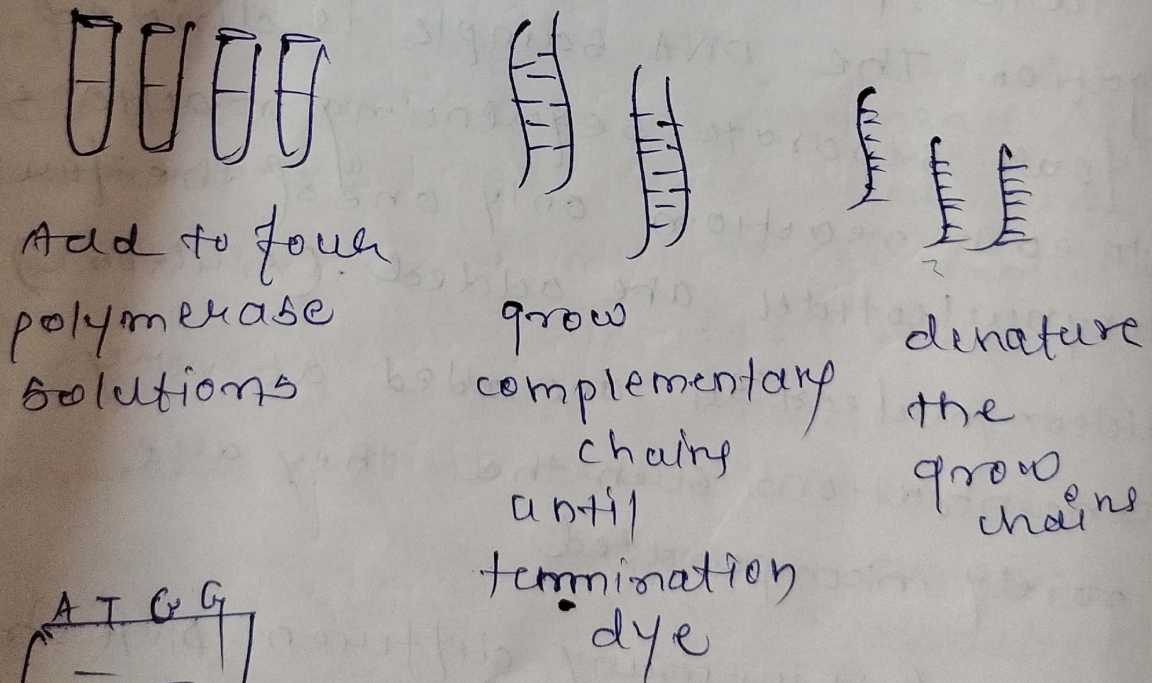 Add to four
polymerase
solutions
grow
complementary
chains
until
termination
dye
denature
the
grow
chains
A T G G